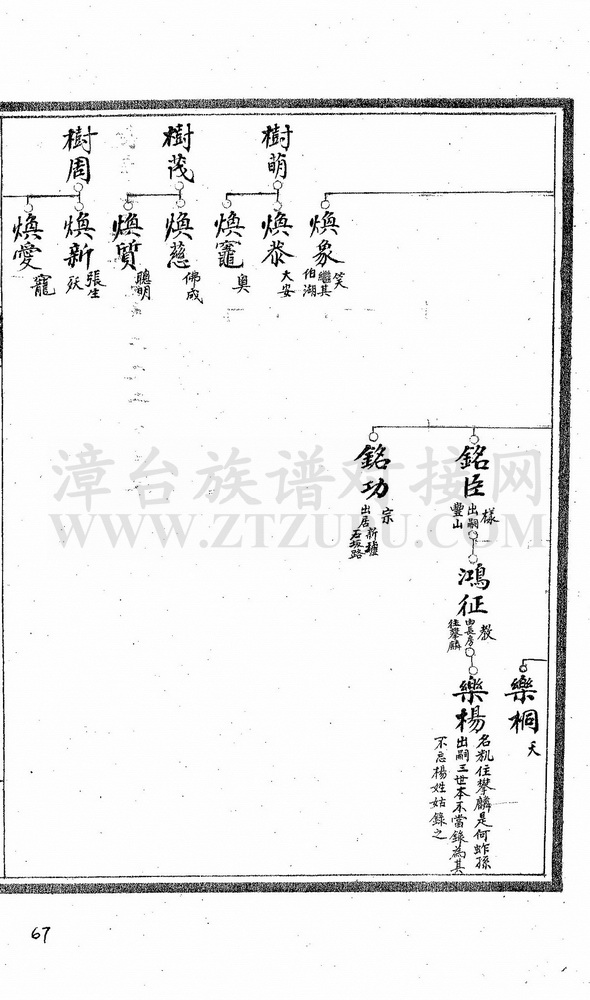 樹萌
樹茂
樹周
煥象
笑
繼其
伯湖
煥恭
大安
煥竈
奥
煥慈
佛成
煥質
聰明
煥新
張生
妖
煥愛
寵
銘臣
樣
出嗣
豐山
銘功
宗
新壚
出居
石坂路
鴻征
教
由長房
往攀麟
樂桐
天
樂楊
名亂住攀麟是何蚱孫
出嗣三世本不當錄為其
不忘楊姓姑錄之
漳台族谱对接网
WWW.ZTZUPU.COM
67